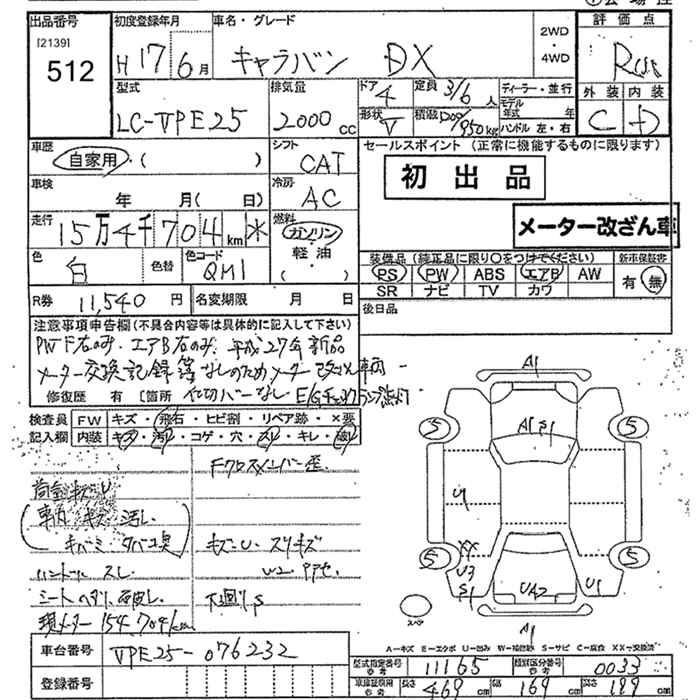 出品番号
[2139]
512
初度登録年月
H 17 6月
車名・グレード
キャラバン DX
2WD
・
4WD
評価点
外装 内装
C D
型式
LC-VPE25
排気量
2000 cc
ドア 4
定員 3/6 人
形状 V
積載 1200/950 kg
ディーラー・並行
モデル年式 年
ハンドル 左・右
車歴
自家用・( )
シフト
CAT
車検
年 月( 日)
冷房
AC
走行
15万4千704km *
燃料
ガソリン
軽油
( ・ )
色
白
色替
色コード
QM1
R券 11,540 円
名変期限 月 日
セールスポイント (正常に機能するものに限ります)
初出品
メーター改ざん車
装備品 (純正品に限り○をつけてください)
新車保証書
PS PW ABS エアB AW
SR ナビ TV カワ
有・無
後日品
注意事項申告欄(不具合内容等は具体的に記入して下さい)
PW F右のみ.エアB右のみ.平成27年新品
メーター交換記録簿なしのためメーター改ざん車両
修復歴 有 [箇所 仕切バーなし E/Gチェックランプ点灯
検査員記入欄
FW キズ・飛石・ヒビ割・リペア跡・×要
内装 キズ・汚れ・コゲ・穴・スレ・キレ・破れ
Fクロスメンバー歪.
荷室キズ U
車内 キズ 汚れ.
キバミ タバコ臭
キズ・U. スリキズ
ハンドル スレ
シート
下廻り.S
現メーター 154,704km
A1
A1 S1
5
5
5
5
U1
XX
U3
S1
UA2
U1
A1
スペア
A-キズ E-エクボ U-凹み W-補修跡 S-サビ C-腐食 XX-交換済
車台番号 VPE25-076232
登録番号
型式指定番号 参考 11165
類別区分番号 参考 0033
車庫証明用 参考 長さ 469 cm 幅 169 cm 高さ 199 cm